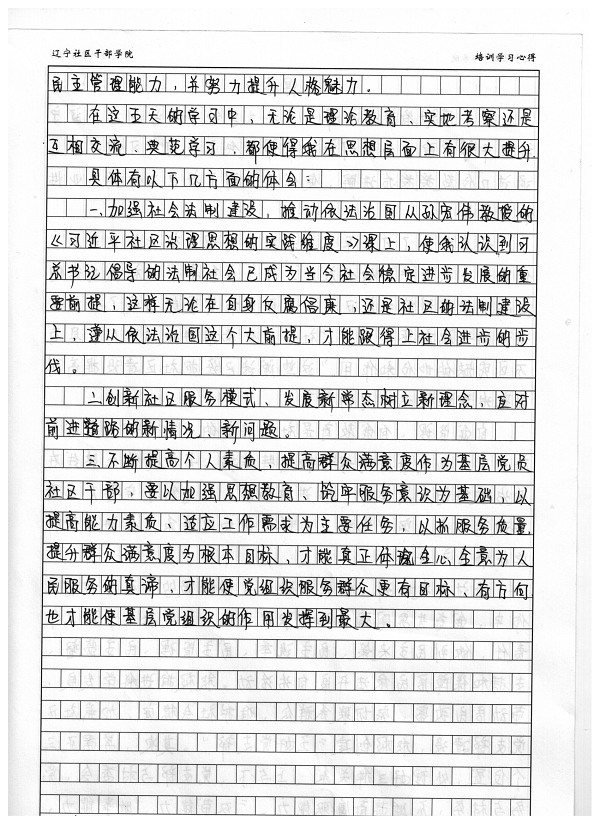 辽宁社区干部学院 培训学习心得
民主管理能力，并努力提升人格魅力。
在这五天的学习中，无论是理论教育、实地考察还是
互相交流、典范学习，都使得我在思想层面上有很大提升.
具体有以下几方面的体会：
一.加强社会法制建设，推动依法治国从孙宏伟教授的
《习近平社区治理思想的实践维度》课上，使我认识到习
总书记倡导的法制社会已成为当今社会稳定进步发展的重
要前提，这样无论在自身反腐倡廉，还是社区的法制建设
上，遵从依法治国这个大前提，才能跟得上社会进步的步
伐。
二.创新社区服务模式、发展新常态树立新理念，应对
前进道路的新情况、新问题。
三.不断提高个人素质，提高群众满意度作为基层党员
社区干部，要以加强思想教育、铃牢服务意识为基础，以
提高能力素质、适应工作需求为主要任务，以抓服务质量.
提升群众满意度为根本目标，才能真正体现全心全意为人
民服务的真谛，才能使党组织服务群众更有目标、有方向
也才能使基层党组织的作用发挥到最大。